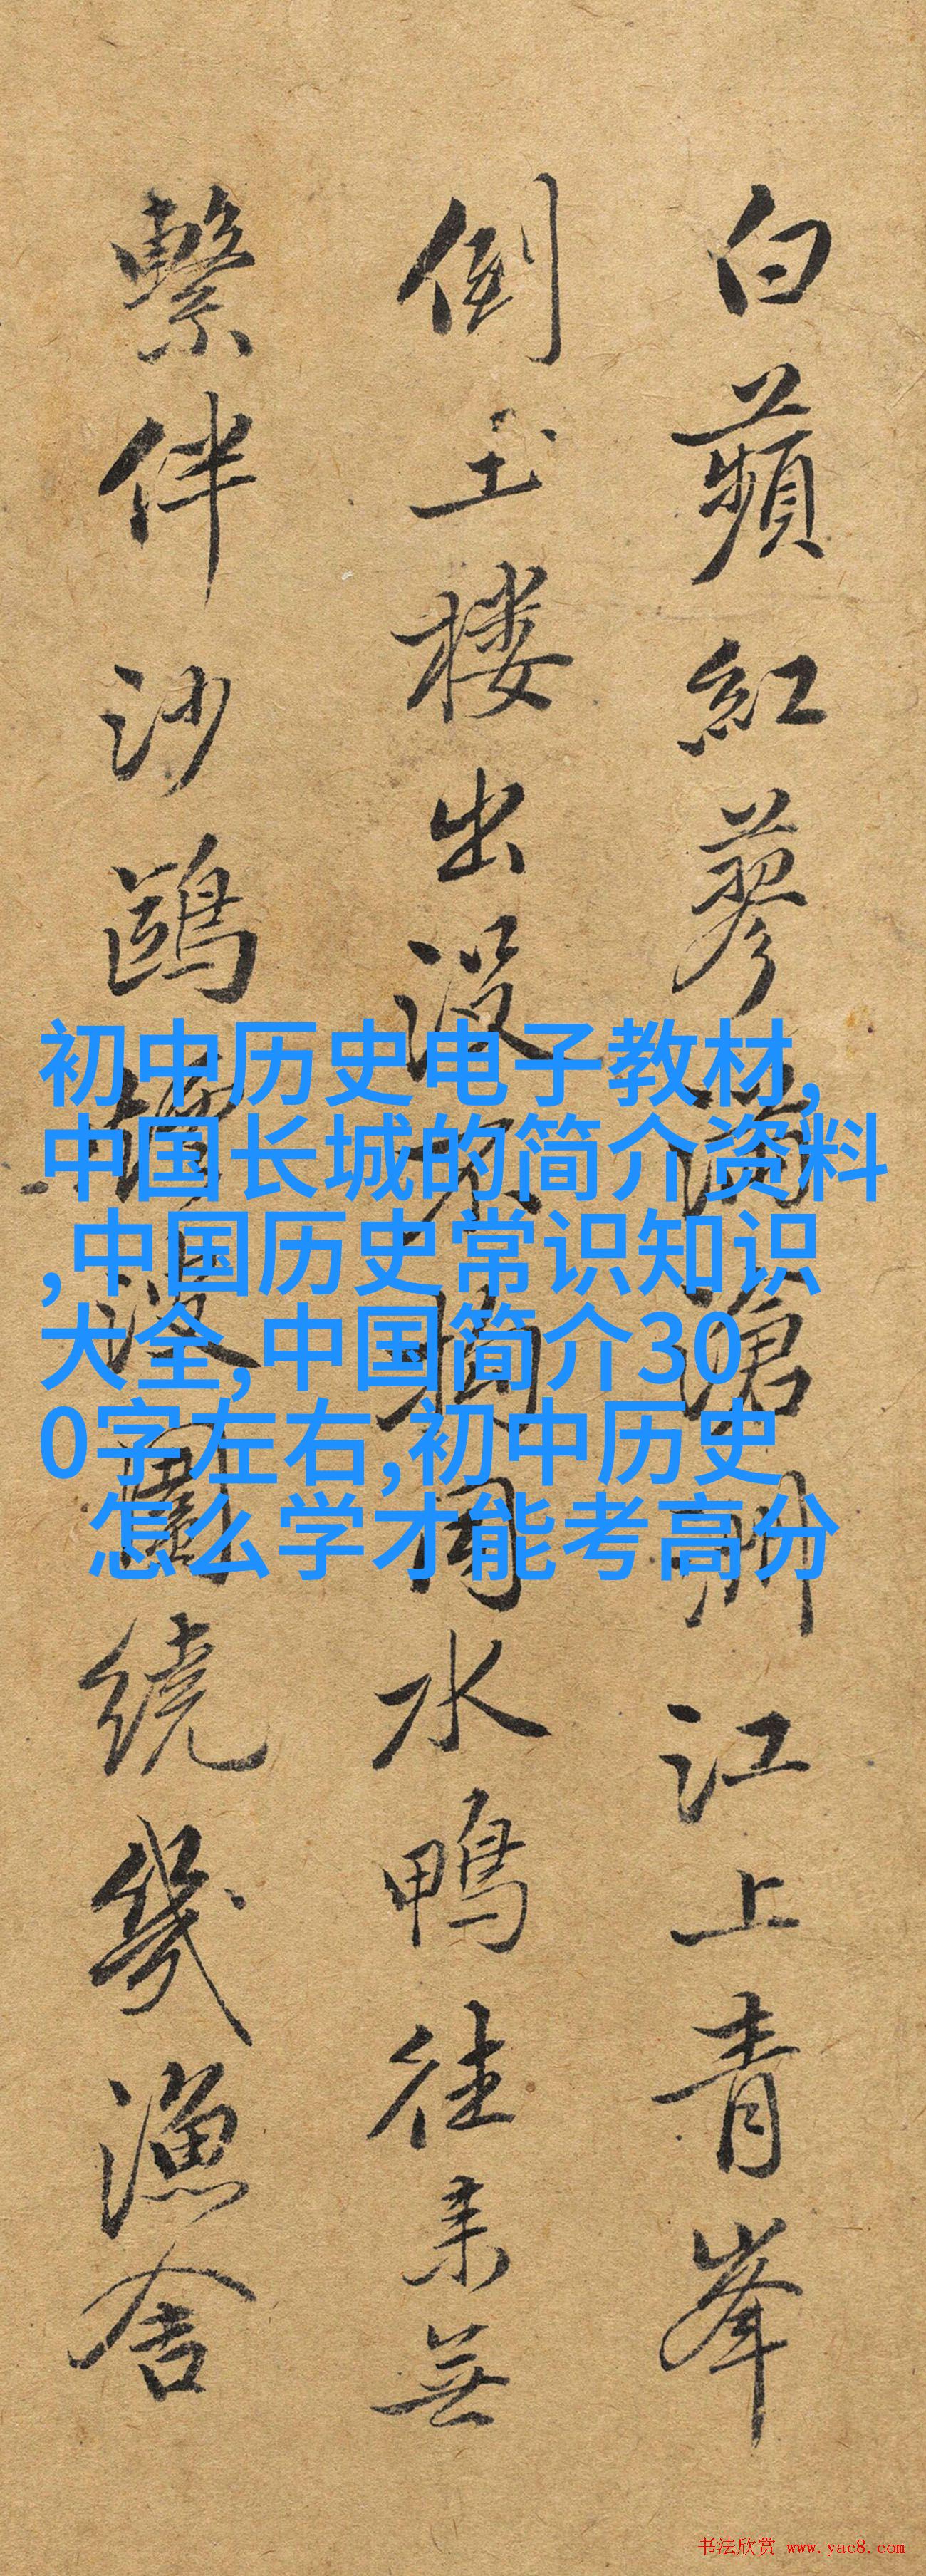 白蘋紅蓼滿滄洲江上青峯
倒玉楼出没不摇同水鴨往来無
繫伴沙鷗檣沒圍繞幾漁舍
初中历史电子教材,
中国长城的简介资料
,中国历史常识知识
大全,中国简介30
0字左右,初中历史
怎么学才能考高分
书法欣赏 www.yac8.com